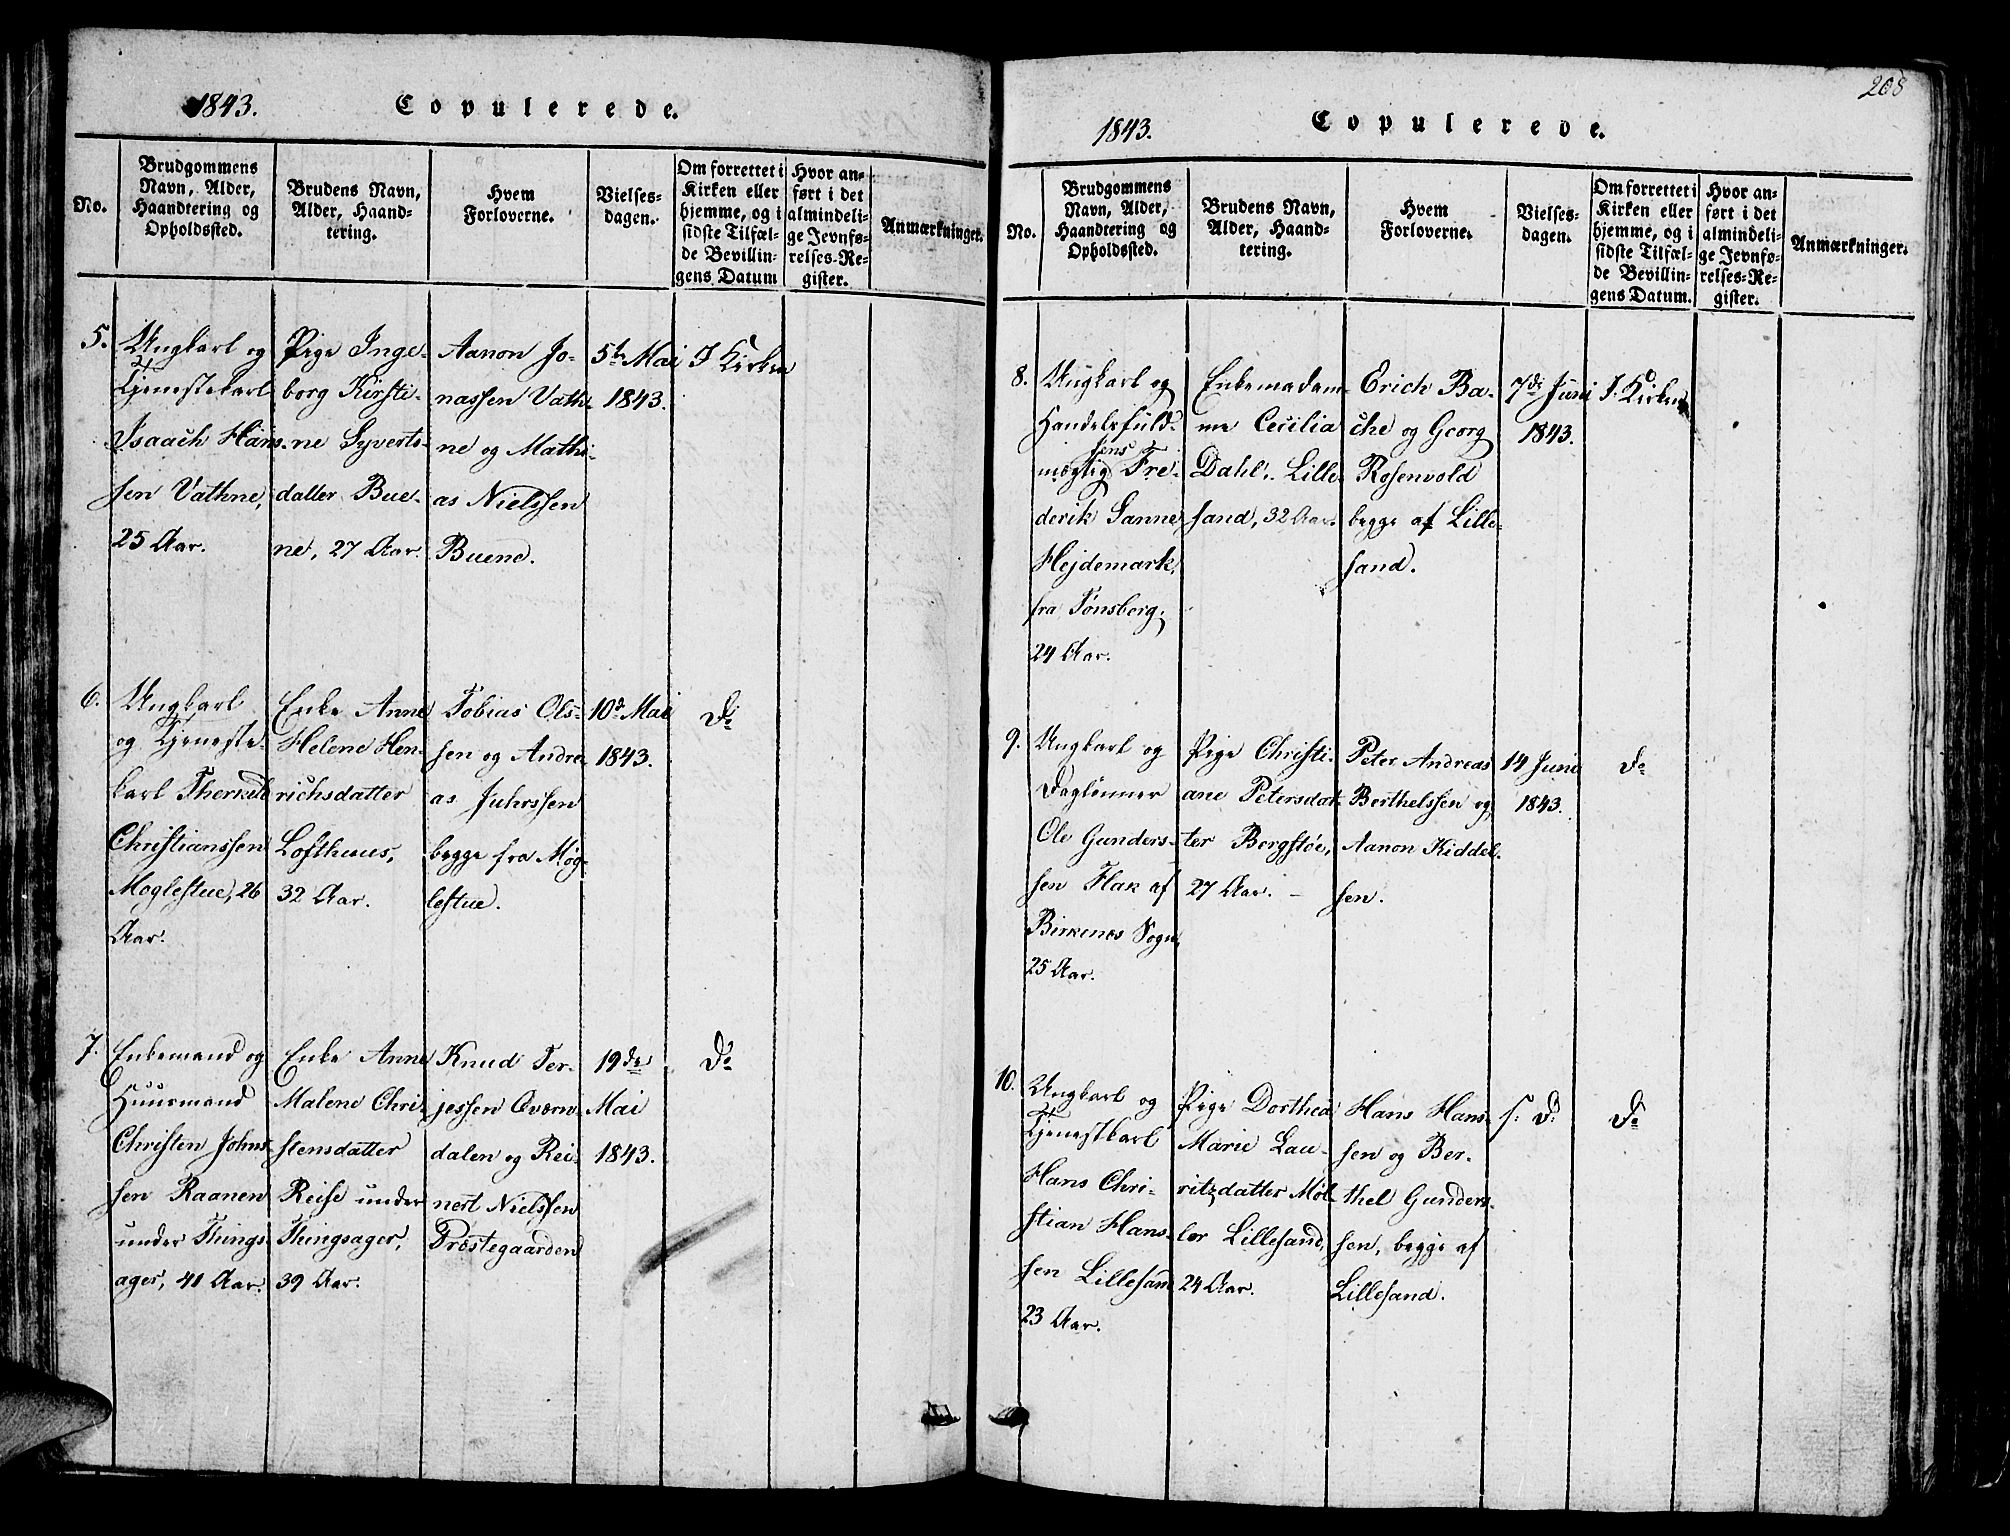 1843.
Copulerede.
No.
Brudgommens
Navn, Alder,
Haandtering og
Opholdssted.
Brudens Navn,
Alder, Haand-
tering.
Hvem
Forloverne.
Vielses-
dagen.
Om forrettet i
Kirken eller
hjemme, og i
sidste Tilfæl-
de Bevillin-
gens Datum
Hvor an-
ført i det
almindeli-
ge Jevnfø-
relses-Re-
gister.
Anmærkninger.
5.
Ungkarl og
Tjenestekarl
Isaach Hans-
sen Vathne,
25 Aar.
Pige Inge-
borg Kirsti-
ne Syverts-
datter Bue-
ne, 27 Aar.
Aanon Jo-
nassen Vath-
ne og Mathi-
as Nielssen
Buene.
5te Mai
1843.
I Kirken
6.
Ungkarl
og Tjeneste-
karl Therkild
Christianssen
Moglestue, 26
Aar.
Enke Anne
Helene Hen-
richsdatter
Lofthuus,
32 Aar.
Tobias Ols-
sen og Andre-
as Juhrssen
begge fra Møg-
lestue.
10de Mai
1843.
Do
7.
Enkemand og
Huusmand
Christen Johns-
sen Raanen
under Things-
ager, 41 Aar.
Enke Anne
Malene Chri-
stensdatter
Reise under
Thingsager,
39 Aar.
Knud Ter-
jessen Qværn-
dalen og Rei-
nert Nielssen
Præstegaarden
19de
Mai
1843.
Do
208
1843.
Copulerede.
No.
Brudgommens
Navn, Alder,
Haandtering og
Opholdssted.
Brudens Navn,
Alder, Haand-
tering.
Hvem
Forloverne.
Vielses-
dagen.
Om forrettet i
Kirken eller
hjemme, og i
sidste Tilfæl-
de Bevillin-
gens Datum.
Hvor an-
ført i det
almindeli-
ge Jevnfø-
relses-Re-
gister.
Anmærkninger.
8.
Ungkarl og
Handelsfuld-
mægtig Jens Fre-
derik Sanne
Hejdemark,
fra Tønsberg.
24 Aar.
Enkemadam-
me Cecilia
Dahl, Lille-
sand, 32 Aar.
Erich Ba-
che og Georg
Rosenvold
begge af Lille-
sand.
7de Juni
1843.
I Kirken
9.
Ungkarl og
Dagleinner
Ole Gunders-
sen Flak af
Birkenes Sogn,
25 Aar.
Pige Christi-
ane Petersdat-
ter Bergstøe,
27 Aar. -
Peter Andreas
Berthelssen og
Aanon Kiddel-
sen.
14 Juni
1843.
Do
10.
Ungkarl og
Tjenestkarl
Hans Chri-
stian Hans-
sen Lillesand
23 Aar.
Pige Dorthea
Marie Lau-
ritzdatter Møl-
ler Lillesand,
24 Aar.
Hans Hans-
sen og Ber-
thel Gunders-
sen, begge af
Lillesand.
s: D:
Do